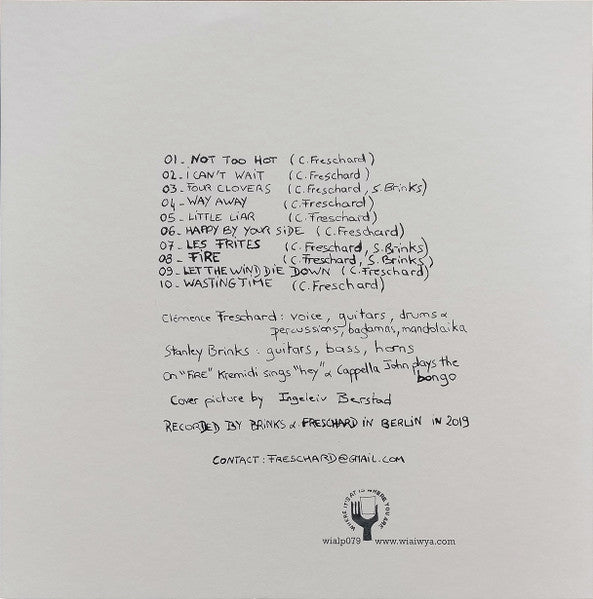 01_ NOT TOO HOT (C.Freschard)
02_ I CAN'T WAIT (C.Freschard)
03_ FOUR CLOVERS (C.Freschard, S.Brinks)
04_ WAY AWAY (C.Freschard)
05_ LITTLE LIAR (C.Freschard)
06_ HAPPY BY YOUR SIDE (C.Freschard)
07_ LES FRITES (C.Freschard, S.Brinks)
08_ FIRE (C.Freschard, S.Brinks)
09_ LET THE WIND DIE DOWN (C.Freschard)
10_ WASTING TIME (C.Freschard)
Clémence Freschard : voice, guitars, drums &
percussions, bagamas, mandolaika
Stanley Brinks : guitars, bass, horns
On "FIRE" Kremidi sings "hey" & Cappella John plays the
bongo
Cover picture by Ingeleiv Berstad
RECORDED BY BRINKS & FRESCHARD IN BERLIN IN 2019
CONTACT : FRESCHARD@GMAIL.COM
WHERE IT'S AT IS WHERE YOU ARE
wialp079 www.wiaiwya.com